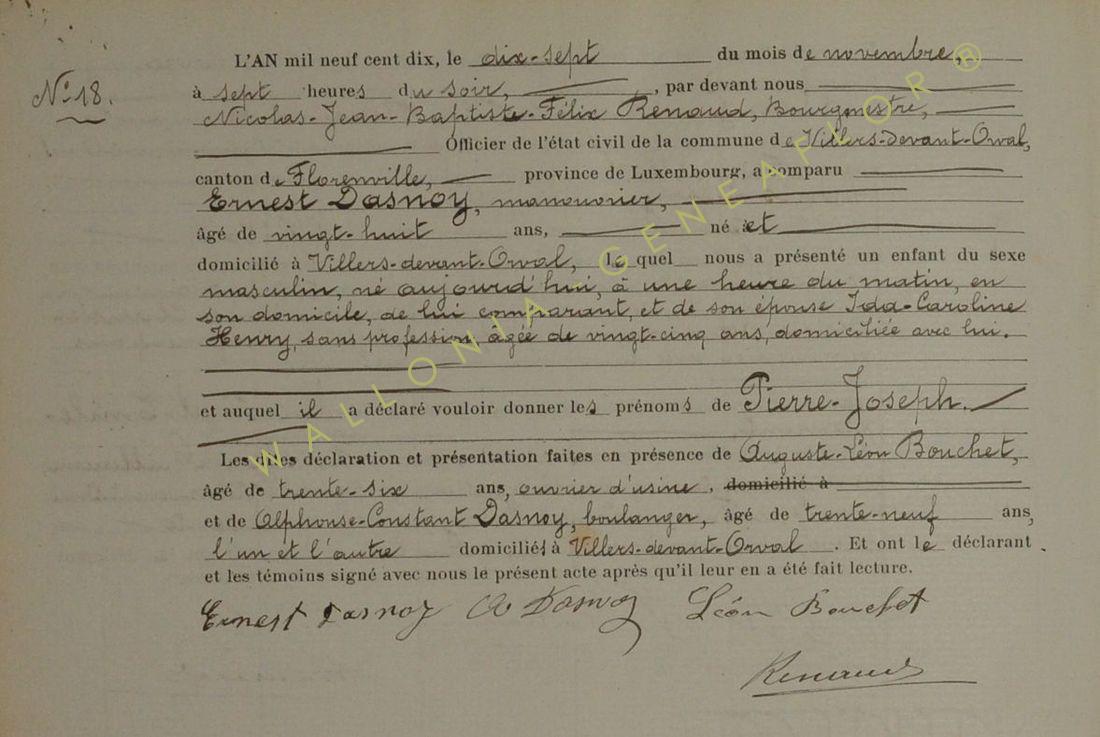 L'AN mil neuf cent dix, le dix-sept du mois de novembre,
N° 18.
à sept heures du soir, par devant nous
Nicolas-Jean-Baptiste-Félix Renaud, Bourgmestre,
Officier de l'état civil de la commune de Villers-devant-Orval,
canton de Florenville, province de Luxembourg, a comparu
Ernest Dasnoy, manouvrier,
âgé de vingt-huit ans, né à et
domicilié à Villers-devant-Orval, lequel nous a présenté un enfant du sexe
masculin, né aujourd'hui, à une heure du matin, en
son domicile, de lui comparant, et de son épouse Ida-Caroline
Henry, sans profession, âgée de vingt-cinq ans, domiciliée avec lui.
et auquel il a déclaré vouloir donner les prénoms de Pierre-Joseph.
Les dites déclaration et présentation faites en présence de Auguste-Léon Bouchet,
âgé de trente-six ans, ouvrier d'usine, domicilié à
et de Alphonse-Constant Dasnoy, boulanger, âgé de trente-neuf ans,
l'un et l'autre domiciliés à Villers-devant-Orval. Et ont le déclarant
et les témoins signé avec nous le présent acte après qu'il leur en a été fait lecture.
Ernest Dasnoy A Dasnoy Léon Bouchet
Renaud
WALLONIA-GENEAFLOR ®